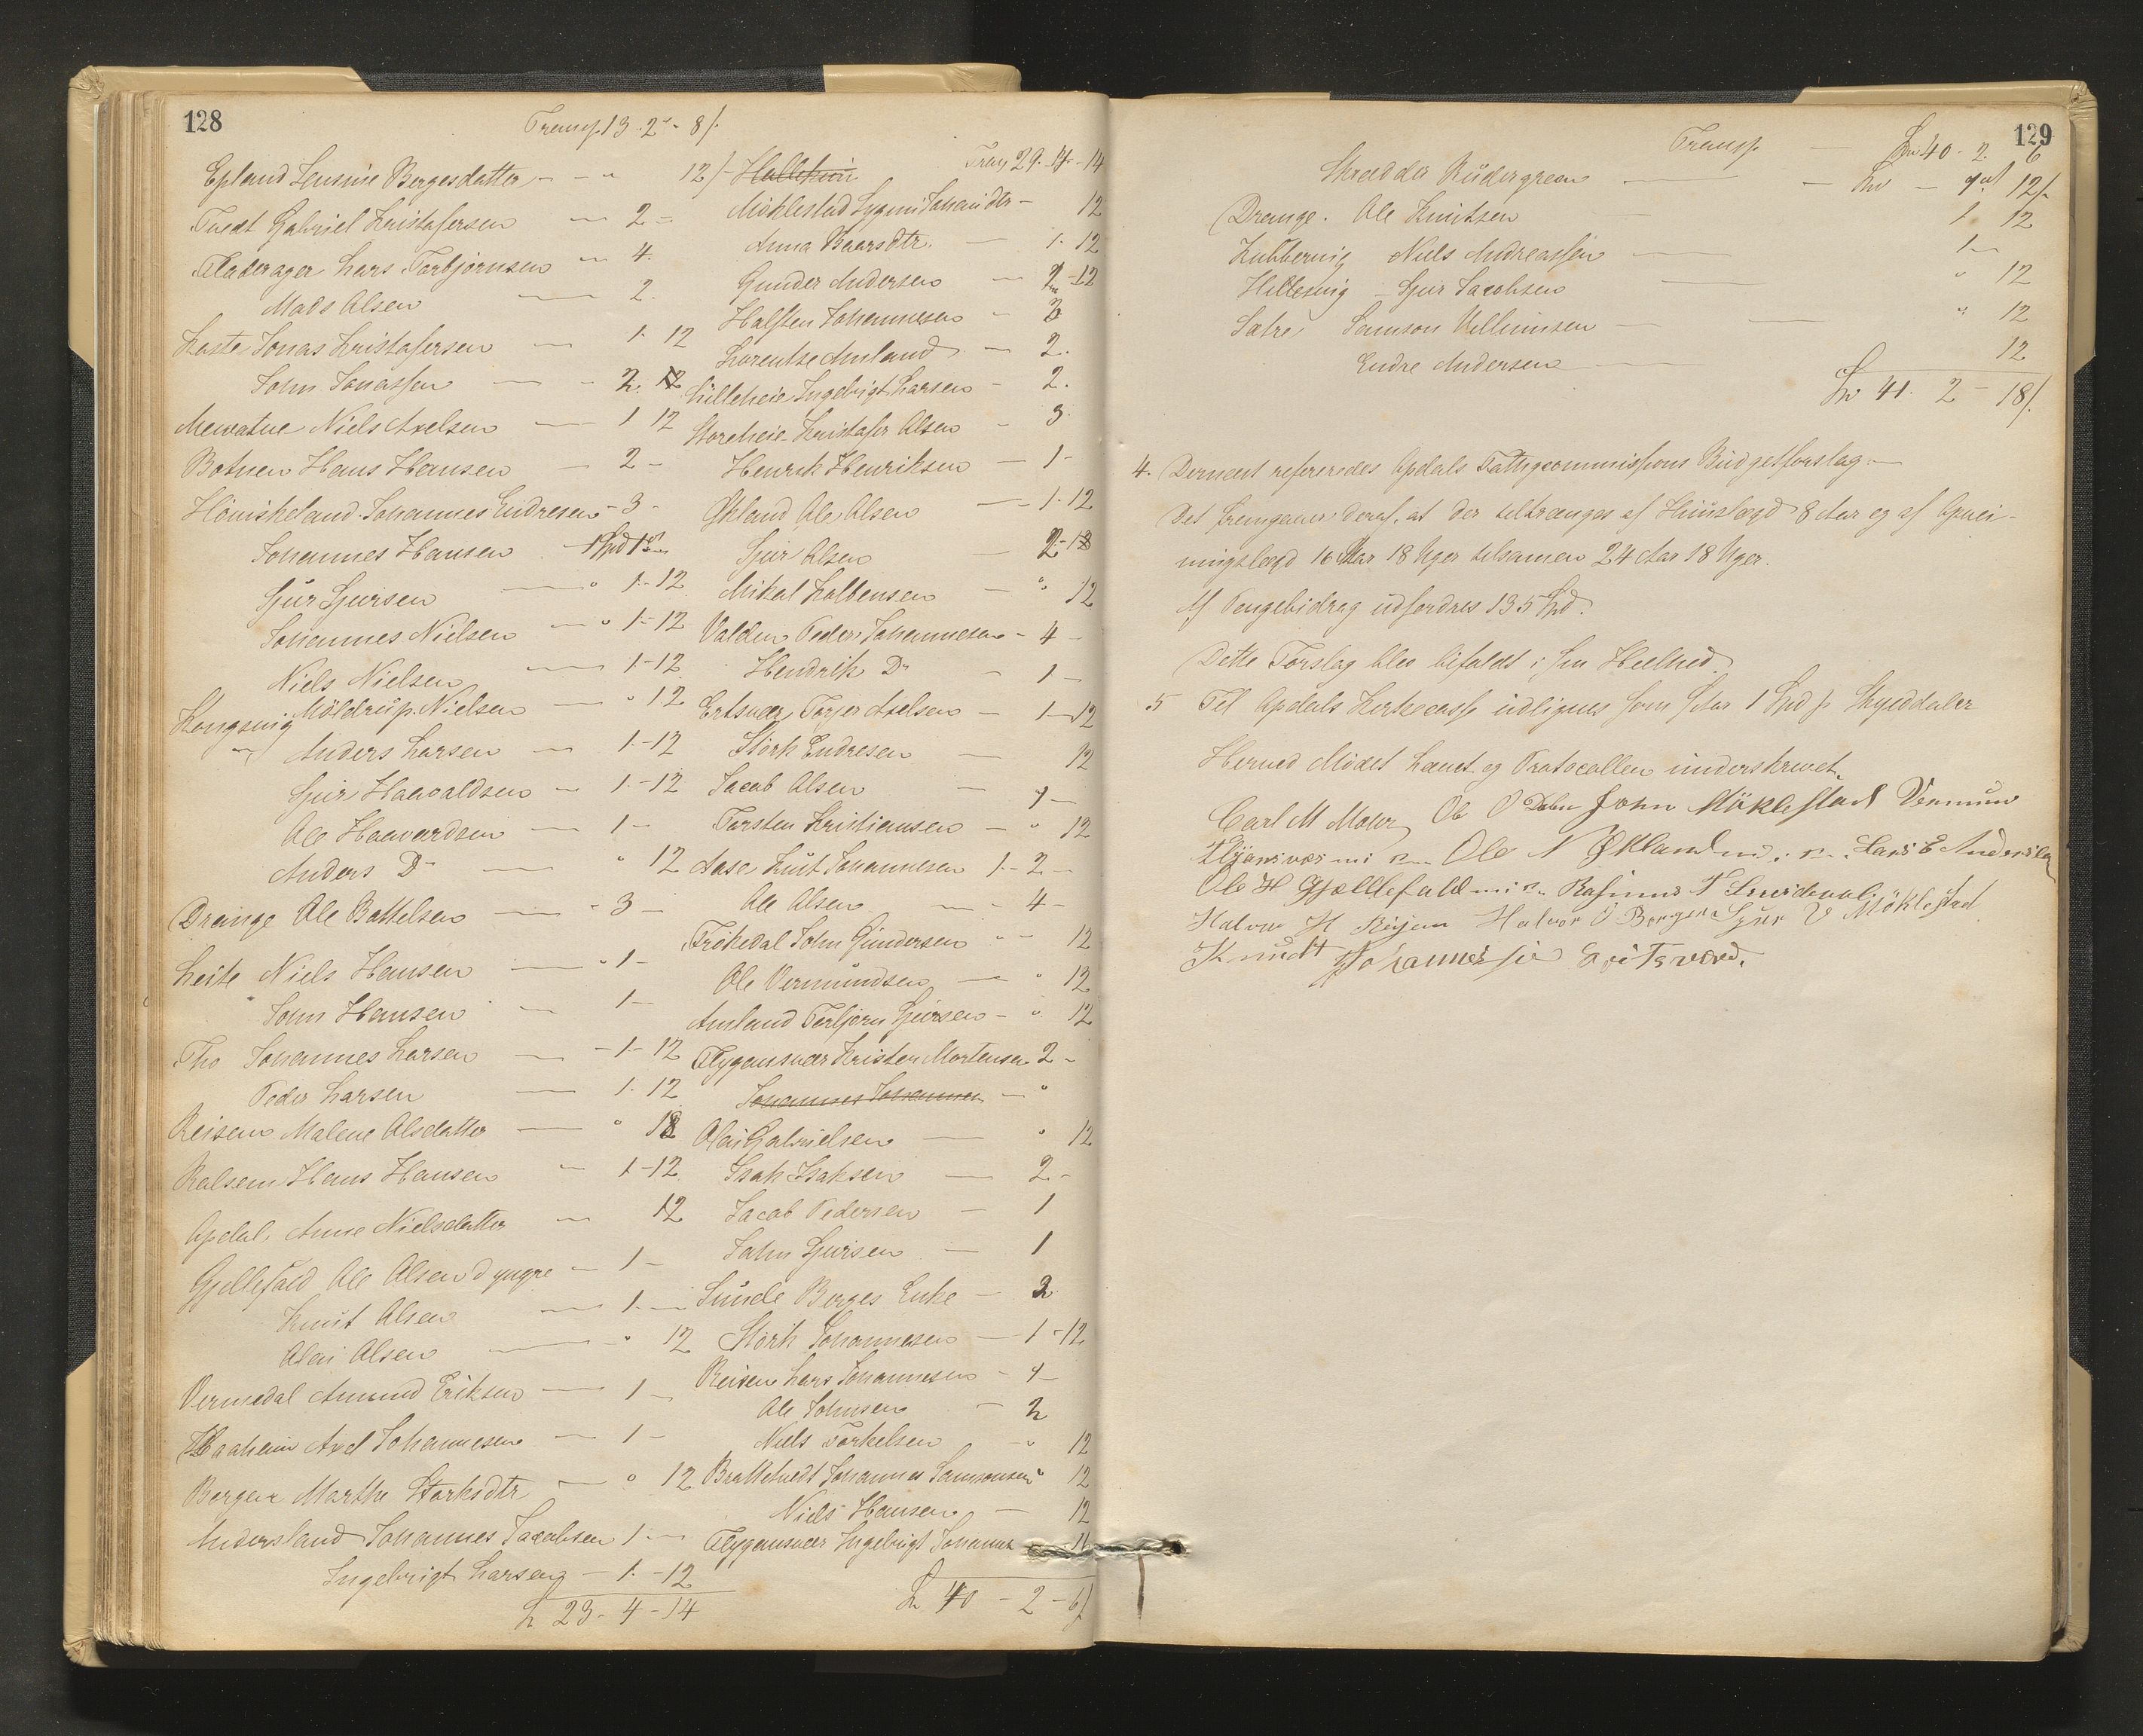 128
Transp. 13. 2 - 8/.
Epland Lensine Bergesdatter - - " 12/-
Tvedt Gabriel Kristofersen - 2 -
Flaterager Lars Torbjørnsen - 4.
Mads Olsen - 2.
Koste Jonas Kristofersen - 1. 12
John Jonassen - 2.
Mevatne Niels Axelsen - 1 12
Botnen Hans Hansen - 2 -
Höviskeland Johannes Endresen - 3 -
Johannes Hansen 1 Spd
Sjur Sjursen - " 1 - 12
Johannes Nielsen - " 1 - 12
Niels Nielsen - 1 - 12
Kongsvig Möldrup Nielsen - " 12
" Anders Larsen - 1. - 12
Sjur Haavaldsen - 1. - 12
Ole Haavardsen - 1 -
Anders Do - " 12
Drange Ole Battelsen - - 3 -
Leite Niels Hansen - " 1 -
" John Hansen - 1 -
Tho Johannes Larsen - - 1 - 12
Peder Larsen - 1. 12
Reisen Malene Olsdatter - " 12
Kalsem Hans Hansen - 1 - 12
Opdal, Anne Nielsdatter - 12
Gjellefald Ole Olsen d yngre - 1 -
Knut Olsen - 1. -
Olai Olsen - " 12
Vermedal Amund Eriksen - 1 -
Haaheim Axel Johannesen - 1 -
Bergen Marthe Storksdtr - " 12
Andersland Johannes Jacobsen 1 -
Ingebrigt Larsen - 1. - 12
23 - 4 - 14
Halleheim Trans 29. 4 - 14
Möklestad Johansdtr - 12
Anna Baarsdtr. - 1. 12
Gunder Andersen - 2 - 12
Halsten Johannesen -
Lorentze Amland - 2.
Lilleheie Ingebrigt Larsen - 2.
Storeheie Kristofer Olsen - 3
Henrik Henriksen - 1 -
Økland Ole Olsen - 1. 12
Sjur Olsen - 2 - 18
Mikal Kolbensen - " 12
Valden Peder Johannesen - 4 -
Hendrik Do - 1 -
Ertsvær Torjer Axelsen - 1 - 12
Störk Endresen - 12
Jacob Olsen - 1 -
Torsten Kristiansen - " 12
Aase Knut Johannesen 1. - 2 -
Ole Olsen - - 4 -
Frökedal John Gundersen " - 12
Ole Vermundsen - " 12
Amland Torbjørn Sjursen - " 12
Flygansvær Kristen Mortensen 2 -
Johannes Johannesen - "
Olai Gabrielsen - " 12
Isak Isaksen - 2 -
Jacob Pedersen - 1
John Sjursen - 1
Sunde Berges Enke - 2
Störk Johannesen - 1 - 12
Reisen Lars Johannesen - 1 -
Ole Johnsen - 2
Niels Torkelsen - " 12
Brattetvedt Johannes Samsonsen " 12
Niels Hansen - 12
Flygansvær Ingebrigt Johannes
40 - 2 - 6/
129
Transp - 40 - 2. 6
Skrædder Rüdergreen - - 12/.
Drange. Ole Knutsen 1. 12
Kubbervig Niels Andreassen - 1 -
Hillesvig - Sjur Jacobsen " 12
Sætre Samson Villumsen - " 12
Endre Andersen 12
41. 2 - 18/.
4. Dernæst refereredes Opdals Fattigcommissions Budgetforslag. -
Det fremgaaer deraf, at der tiltrænges af Huuslægd 8 Aar og af Omei-
ningslægd 16 Aar 18 Uger tilsamen 24 Aar 18 Uger.
Af Pengebidrag udfordres 135 Spd.
Dette Forslag blev bifaldt i sin Heelhed.
5 Til Opdals Kirkecasse udlignes som før 1 Spd pr Skylddaler
Hermed Mödet hævet og Protocollen underskrevet.
Carl M Moler Ole O John Möklestad Vermun
m n Ole N Økland m. n. Lars E Andersla
Ole H Gjellefald m n. Rasmus T
Halvor H Halvor O Bergen Sjur V Möklestad
Knudt Johannessen